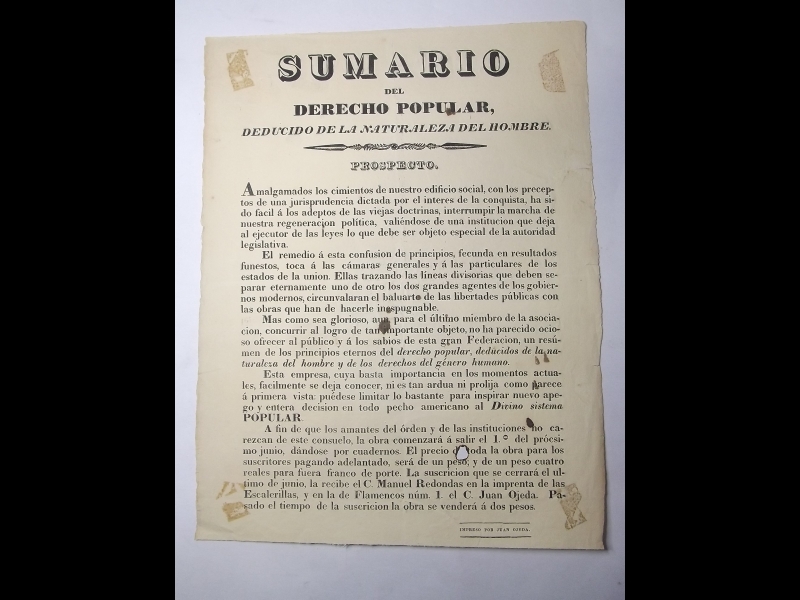 SUMARIO
DEL
DERECHO POPULAR,
DEDUCIDO DE LA NATURALEZA DEL HOMBRE.
PROSPECTO.
Amalgamados los cimientos de nuestro edificio social, con los precep-
tos de una jurisprudencia dictada por el interes de la conquista, ha si-
do facil á los adeptos de las viejas doctrinas, interrumpir la marcha de
nuestra regeneracion política, valiéndose de una institucion que deja
al ejecutor de las leyes lo que debe ser objeto especial de la autoridad
legislativa.
El remedio á esta confusion de principios, fecunda en resultados
funestos, toca á las cámaras generales y á las particulares de los
estados de la union. Ellas trazando las líneas divisorias que deben se-
parar eternamente uno de otro los dos grandes agentes de los gobier-
nos modernos, circunvalaran el baluarte de las libertades públicas con
las obras que han de hacerle inespugnable.
Mas como sea glorioso, aun para el último miembro de la asocia-
cion, concurrir al logro de tan importante objeto, no ha parecido ocio-
so ofrecer al público y á los sabios de esta gran Federacion, un resú-
men de los principios eternos del derecho popular, deducidos de la na-
turaleza del hombre y de los derechos del género humano.
Esta empresa, cuya basta importancia en los momentos actua-
les, facilmente se deja conocer, ni es tan ardua ni prolija como parece
á primera vista: puédese limitar lo bastante para inspirar nuevo ape-
go y entera decision en todo pecho americano al Divino sistema
POPULAR.
A fin de que los amantes del órden y de las instituciones no ca-
rezcan de este consuelo, la obra comenzará á salir el 1.º del prócsi-
mo junio, dándose por cuadernos. El precio de toda la obra para los
suscritores pagando adelantado, será de un peso, y de un peso cuatro
reales para fuera franco de porte. La suscricion que se cerrará el ul-
timo de junio, la recibe el C. Manuel Redondas en la imprenta de las
Escalerillas, y en la de Flamencos núm. 1. el C. Juan Ojeda. Pa-
sado el tiempo de la suscricion la obra se venderá á dos pesos.
IMPRESO POR JUAN OJEDA.